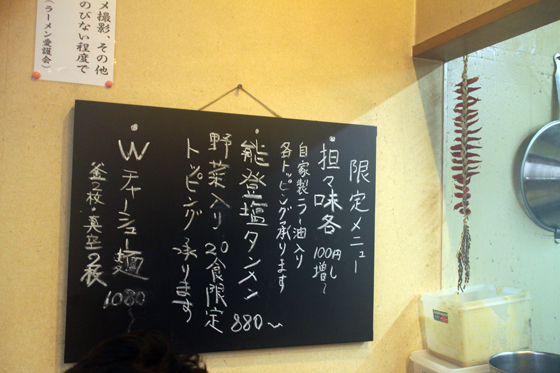 メ撮影、その他
のびない程度で
(ラーメン愛護会)
限定メニュー
担々味各 100円増し〜
自家製ラー油入り
各トッピング承ります
能登塩タンメン 880〜
野菜入り 20食限定
トッピング承ります
Wチャーシュー麺 1080
釜2枚・真空2枚